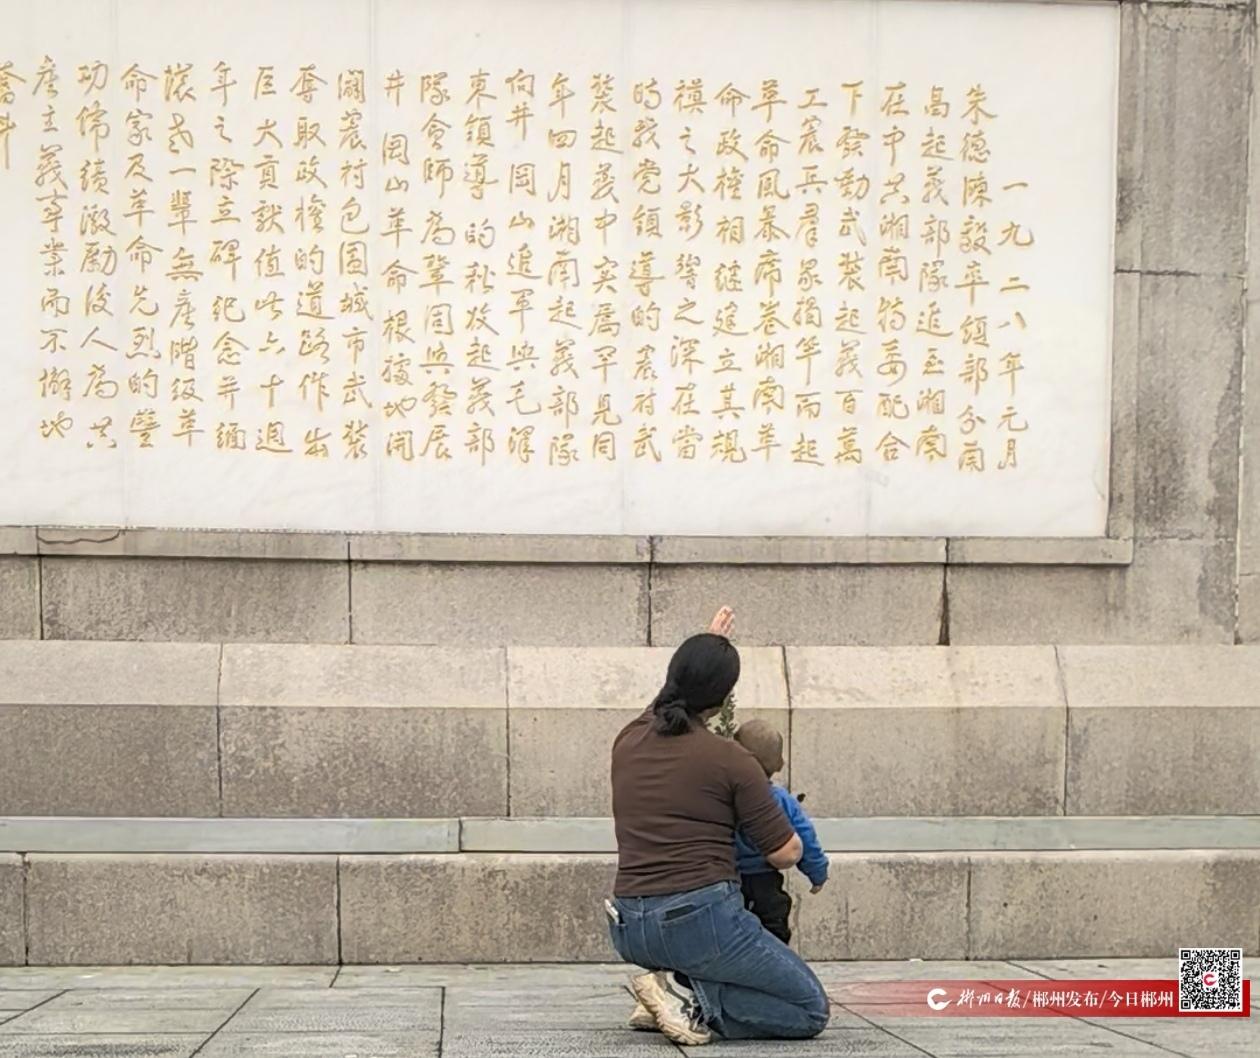 一九二八年元月
朱德陳毅率領部分南
昌起義部隊進至湘南
在中共湘南特委配合
下發動武裝起義百萬
工農兵羣眾揭竿而起
革命風暴席卷湘南革
命政權相繼建立其規
模之大影響之深在當
時我党領導的農村武
裝起義中实爲罕見同
年四月湘南起義部隊
向井岡山進軍與毛澤
東領導的秋收起義部
隊會師爲鞏固與發展
井岡山革命根據地開
闢農村包圍城市武裝
奪取政權的道路作出
巨大貢獻值此六十週
年之際立碑纪念并緬
懷老一輩無產階級革
命家及革命先烈的豐
功偉績激勵後人爲共
產主義事業而不懈地
奮斗
郴州日报/郴州发布/今日郴州